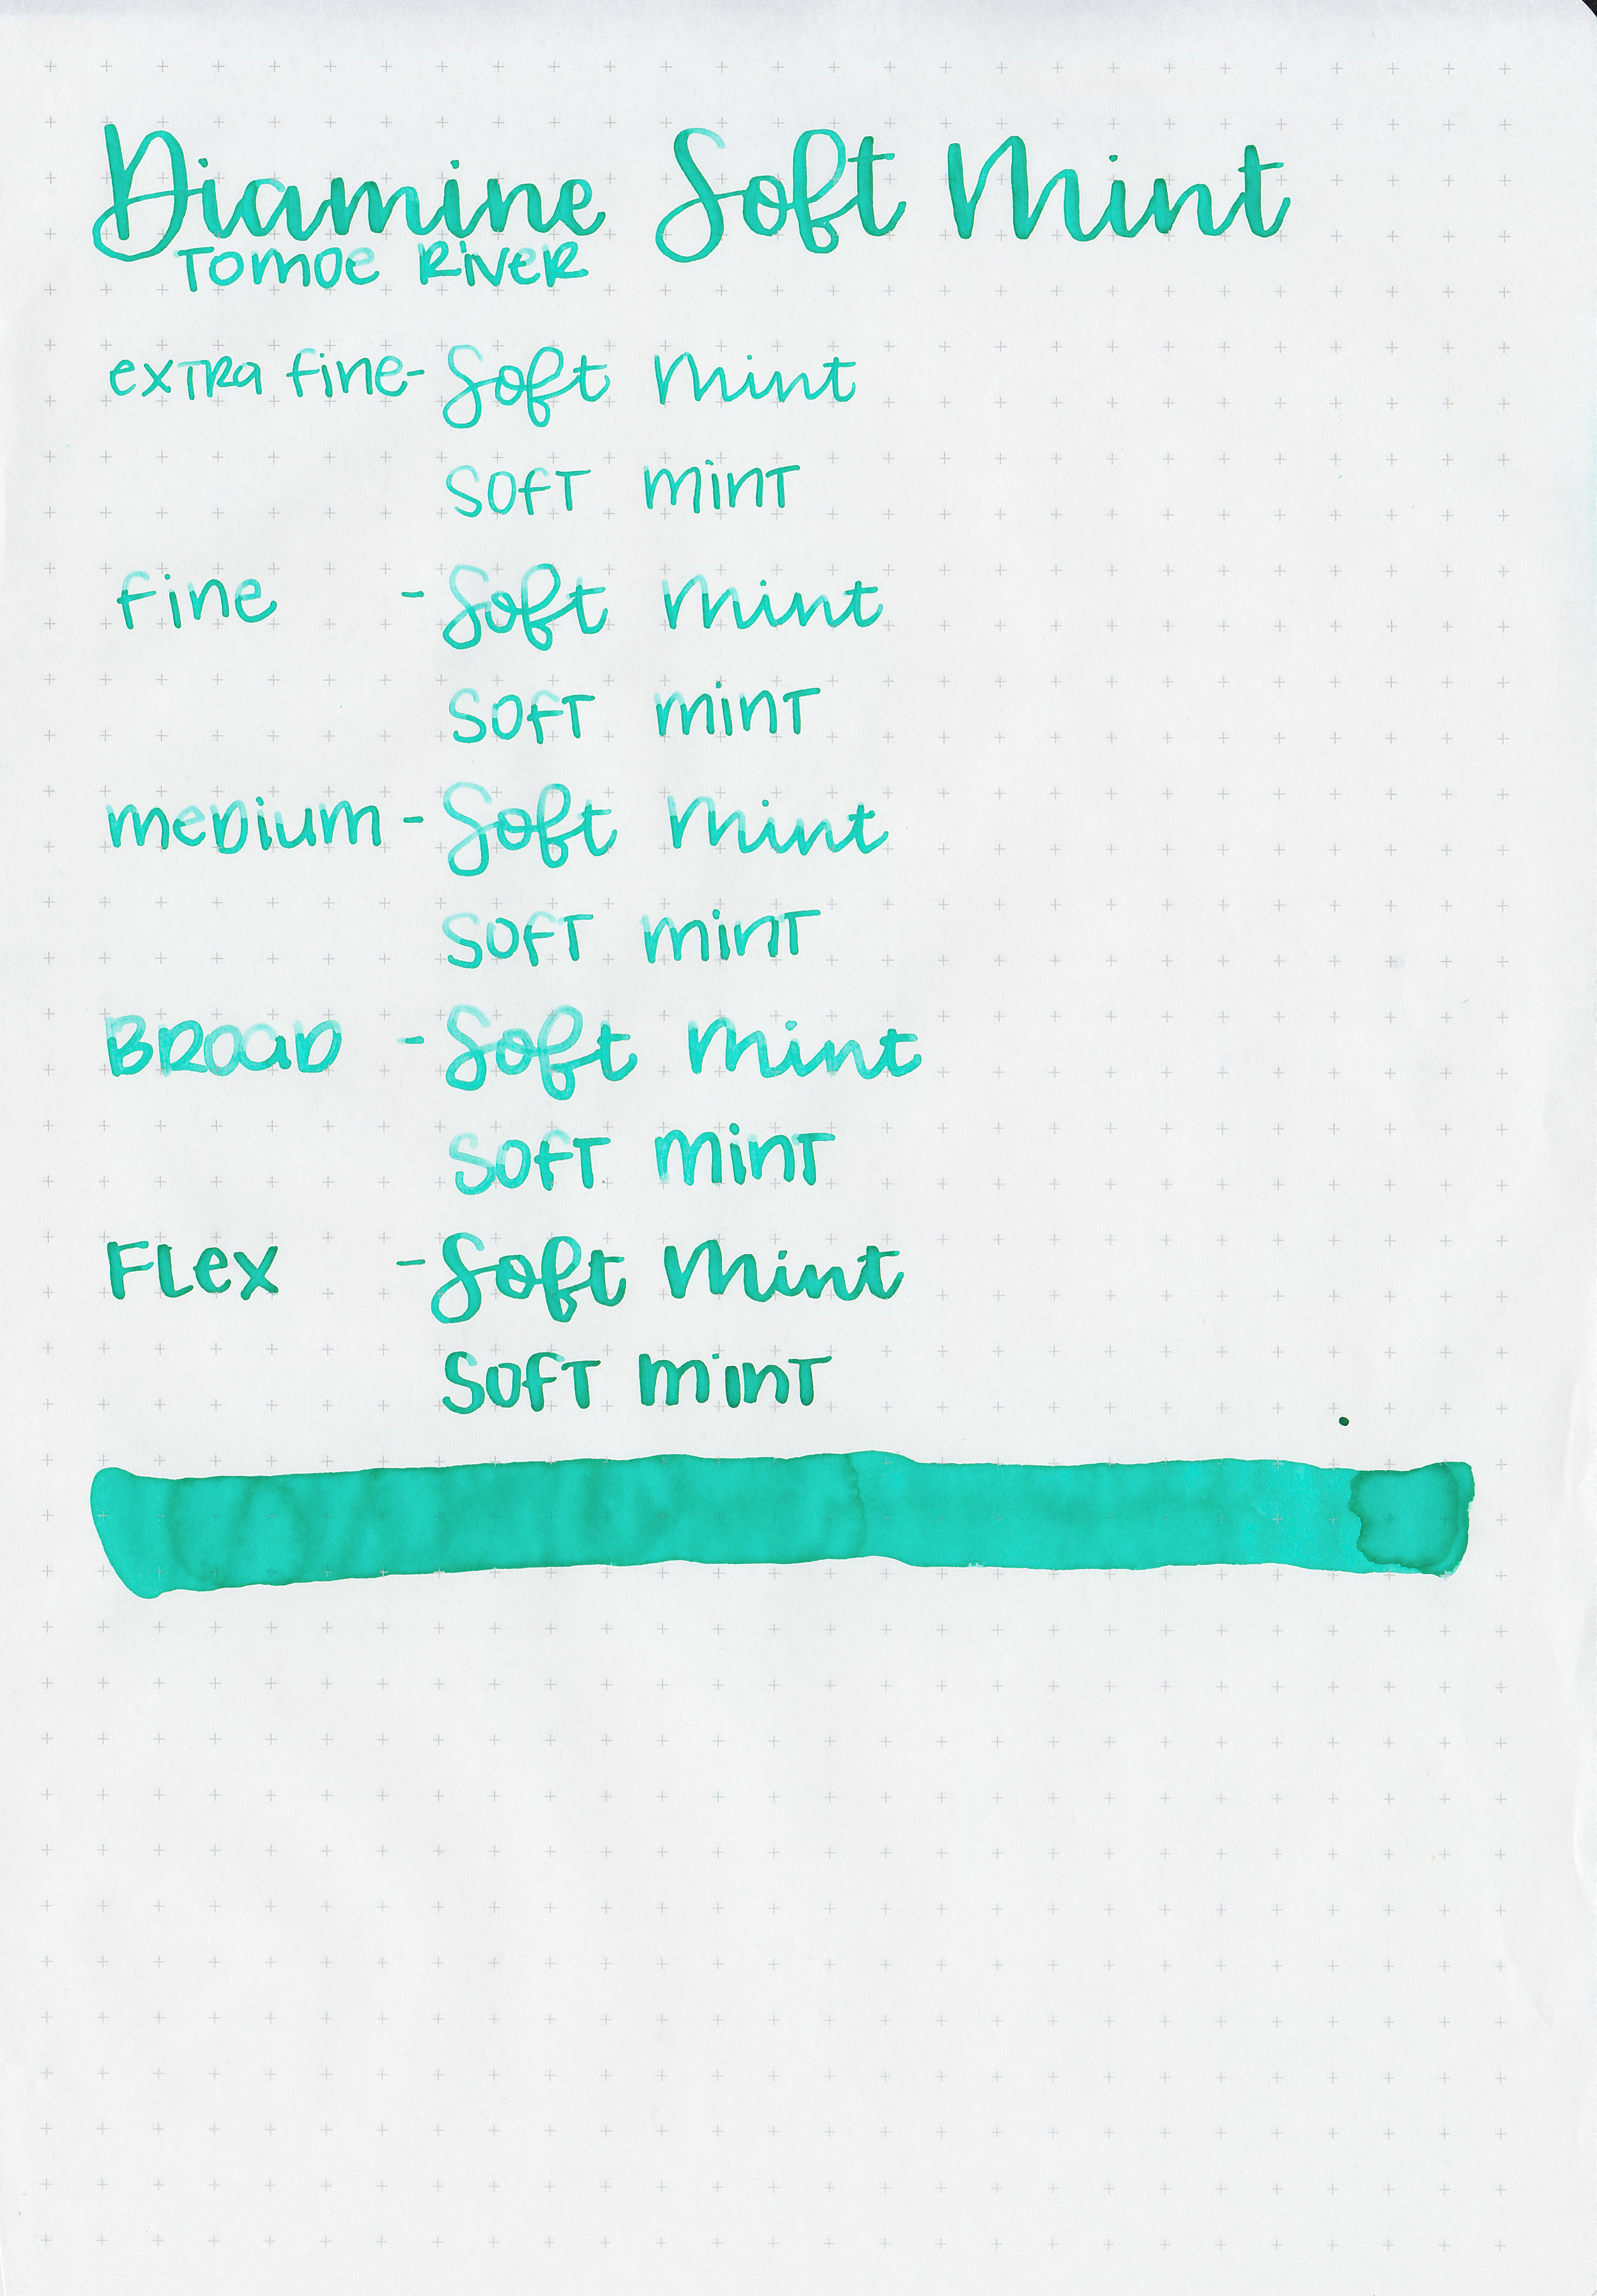 Diamine Soft Mint
Tomoe River
extra fine- Soft Mint
Soft mint
fine - Soft Mint
Soft mint
medium - Soft Mint
Soft mint
Broad - Soft Mint
Soft mint
Flex - Soft Mint
Soft mint